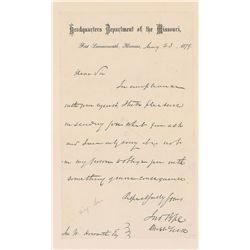 Headquarters Department of the Missouri,
Fort Leavenworth, Kansas, 23, 1879
Dear Sir
In compliance
with your request I take pleasure
in sending you what you ask
and I am only sorry it is not
in my power to oblige you with
something of more consequence
Respectfully Yours
Jno Pope
Jno W.